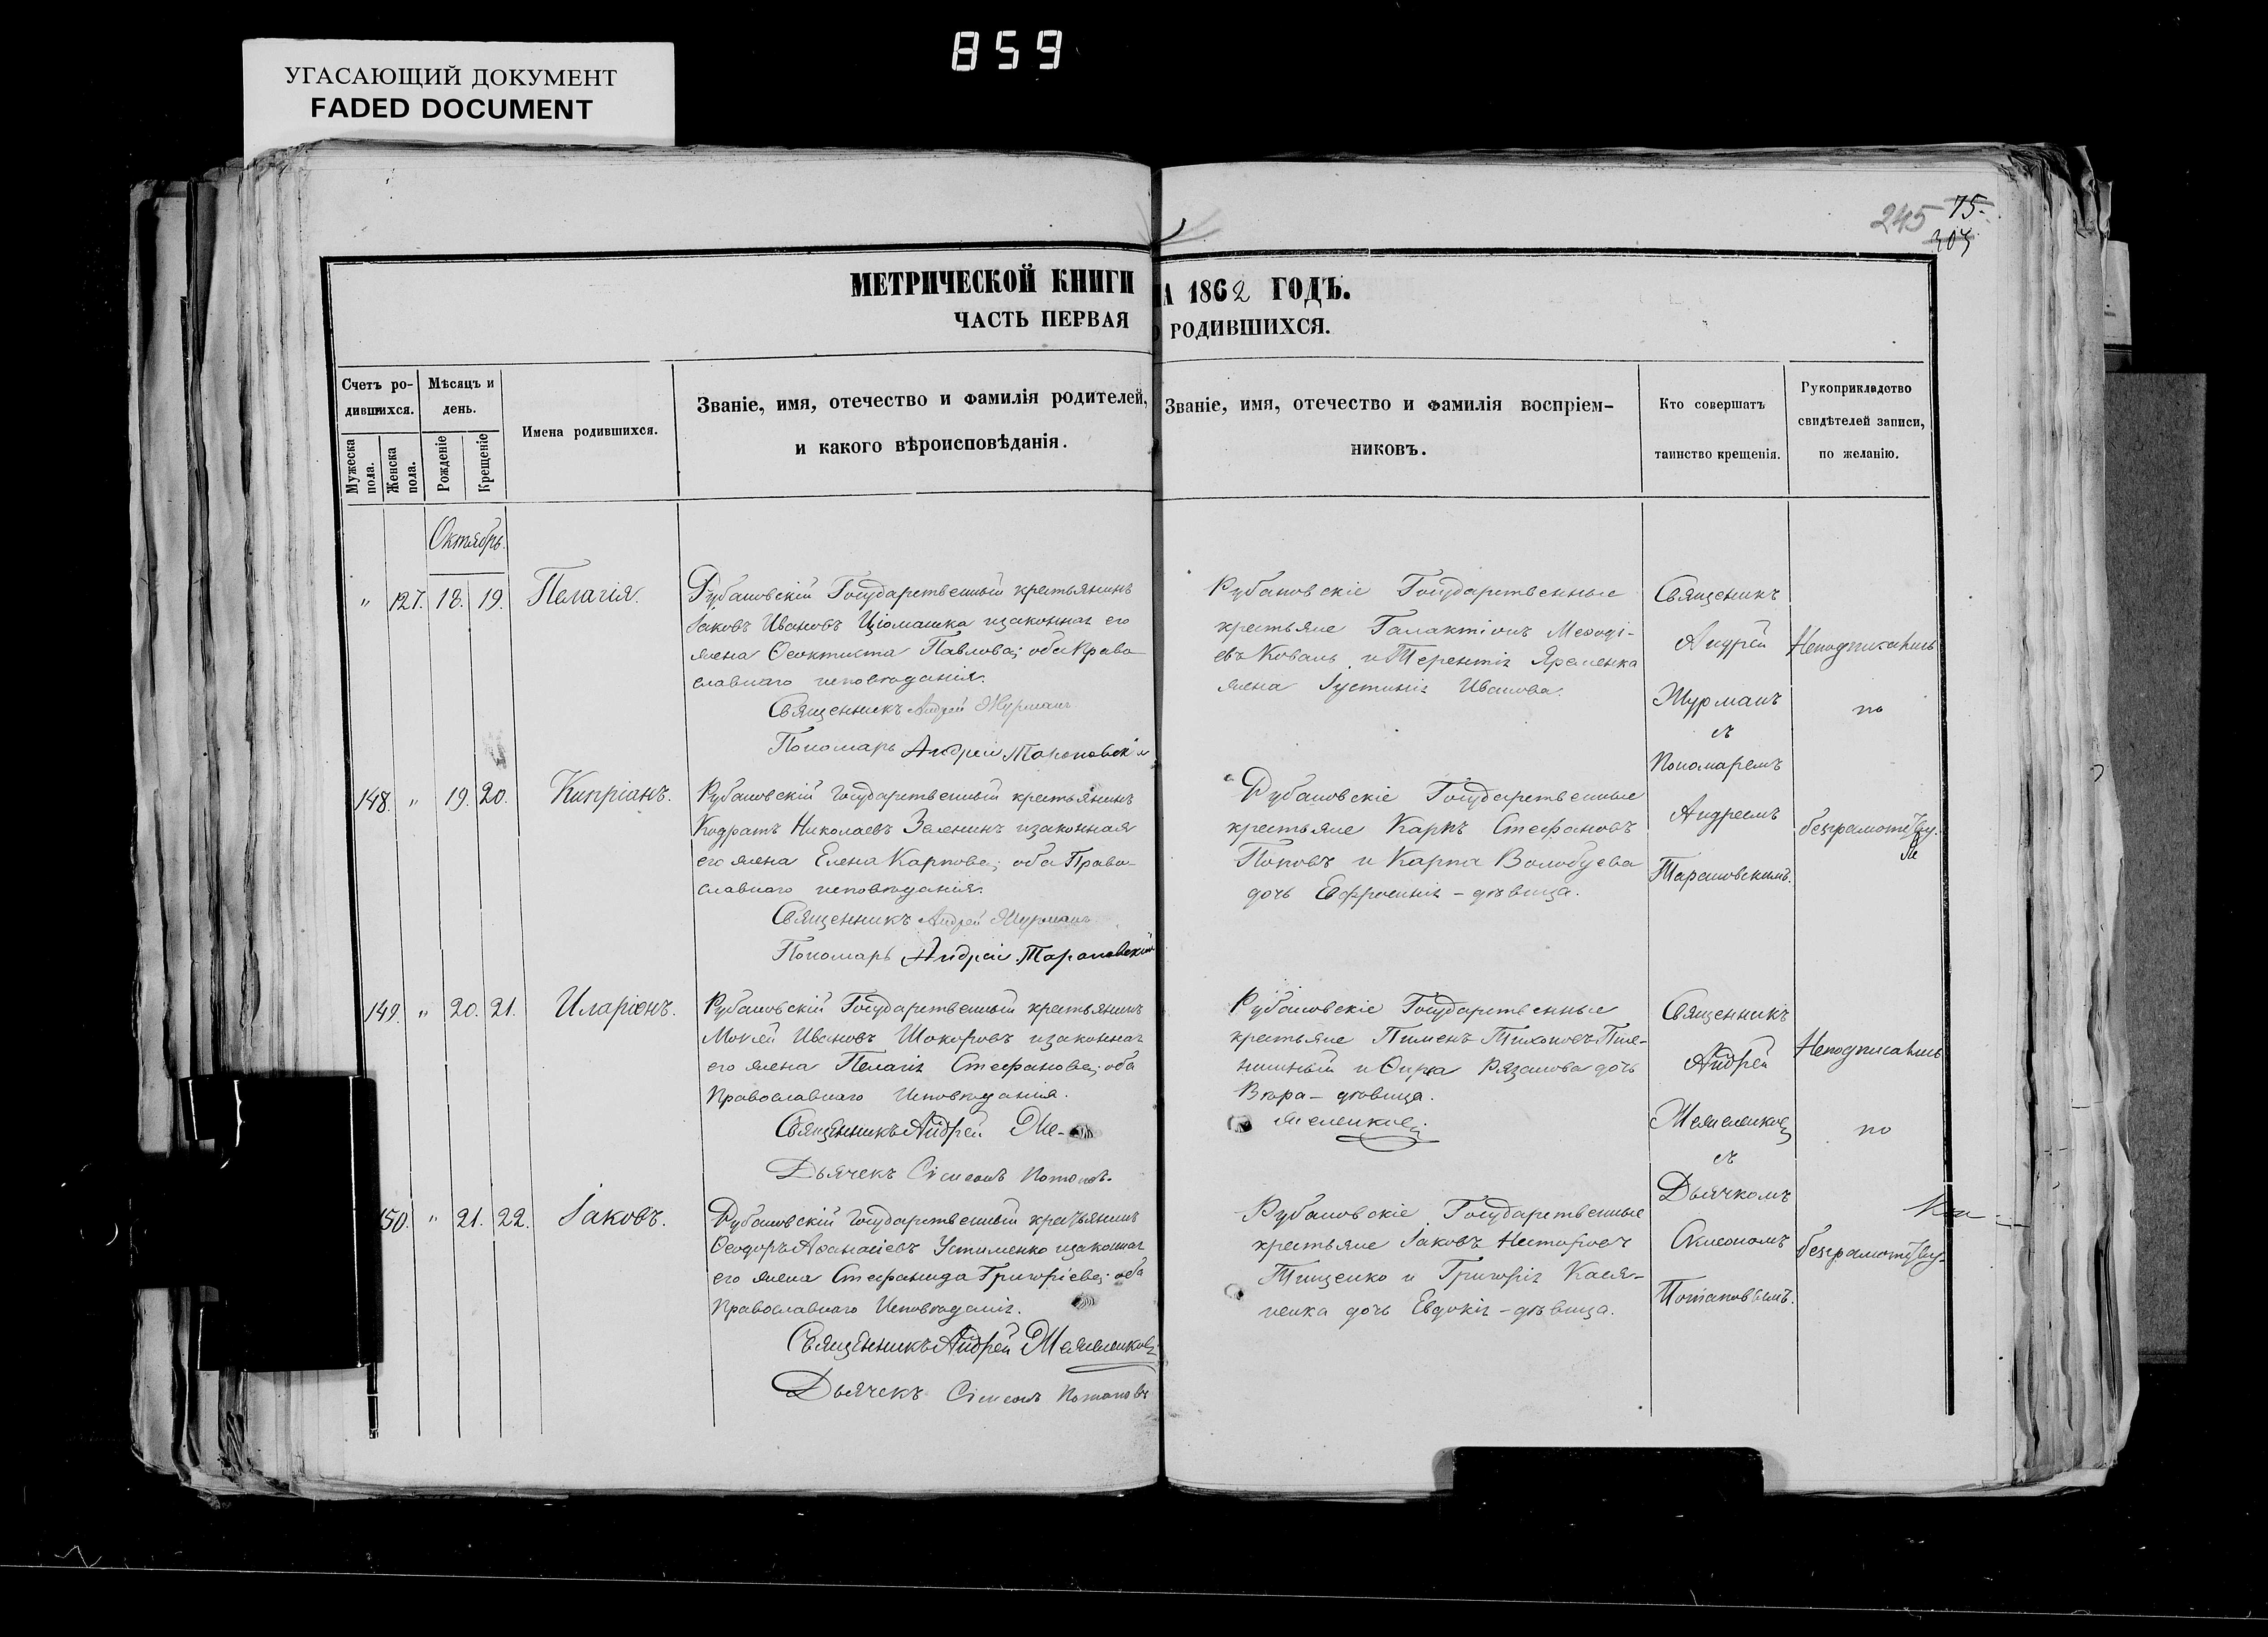 859
УГАСАЮЩИЙ ДОКУМЕНТ
FADED DOCUMENT
245 75.
МЕТРИЧЕСКОЙ КНИГИ
ЧАСТЬ ПЕРВАЯ
А 1862 ГОДЪ.
РОДИВШИХСЯ.
Счетъ ро-
дившихся.
Мужеска
пола.
Женска
пола.
Мѣсяцъ и
день.
Рожденіе
Крещеніе
Имена родившихся.
Званіе, имя, отечество и фамилія родителей,
и какого вѣроисповѣданія.
Званіе, имя, отечество и фамилія воспріем-
никовъ.
Кто совершатъ
таинство крещенія.
Рукоприкладство
свидѣтелей записи,
по желанію.
Октябрь.
" 127. 18. 19. Пелагія.
Рубановскій Государственный крестьянинъ
Іаковъ Ивановъ Цюмашка изаконная его
жена Ѳеоктиста Павлова; оба Право-
славнаго исповѣданія.
Священникъ Андрей Журманъ
Пономарь Андрей Тарановскій
Рубановскіе Государственные
крестьяне Галактіонъ Меѳоді-
евъ Коваль и Терентія Яременка
жена Іустинія Иванова.
Священикъ
Андрей
Журманъ
съ
Пономаремъ
Андреемъ
Тарановскимъ.
Неподписались
по
безграмотству.
148. " 19. 20. Кипріанъ.
Рубановскій Государственный крестьянинъ
Кодратъ Николаевъ Зеленинъ изаконная
его жена Елена Карпова; оба Право-
славнаго исповѣданія.
Священникъ Андрей Журманъ
Пономарь Андрей Тарановскій
Рубановскіе Государственные
крестьяне Карпъ Стефановъ
Поповъ и Карпа Волобуева
дочь Евфросинія - дѣвица.
149. " 20. 21. Иларіонъ.
Рубановскій Государственный крестьянинъ
Мокей Ивановъ Шокоровъ изаконная
его жена Пелагія Стефанова; оба
Православнаго Исповѣданія.
Священникъ Андрей Же-
Дьячекъ Сімеонъ Потаповъ.
Рубановскіе Государственные
крестьяне Пименъ Тихоновъ Пше-
ничный и Ѳирса Рязанова дочь
Вѣра - дѣвица.
Священникъ
Андрей
съ
Дьячкомъ
Симеономъ
Потаповымъ.
Неподписались
по
безграмотству.
150. " 21. 22. Іаковъ.
Рубановскій Государственный крестьянинъ
Ѳеодоръ Аѳанасіевъ Устименко изаконная
его жена Стефанида Григоріева; оба
Православнаго Исповѣданія.
Священникъ Андрей
Дьячекъ Сімеонъ Потаповъ
Рубановскіе Государственные
крестьяне Іаковъ Несторовъ
Тищенко и Григорія Кася-
ненка дочь Евдокія - дѣвица.